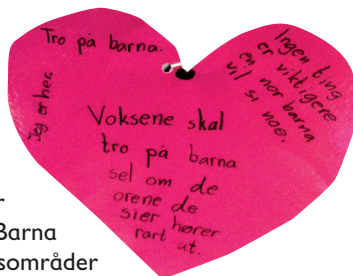 Tro på barna.
Ingen ting
er viktigere
en nor barna
vil si noe.
Jeg er her.
Voksene skal
tro på barna
sel om de
orene de
sier hører
rart ut.
r
Barna
sområder